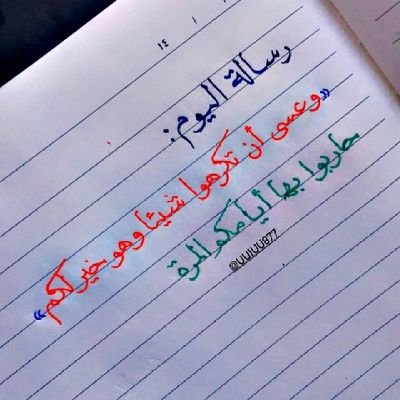 ١٤ ١ ١
رسالة اليوم:
«وعسى أن تكرهوا شيئا وهو خير لكم»
حاربوا بها أيامكم المرة
@UUIUU877